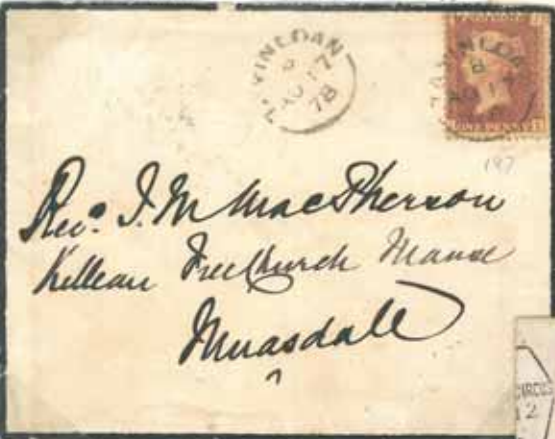 TAYINLOAN
B
AU 17
78
TAYINLOAN
B
AU 1
ONE PENNY
197
Revd. J. M. MacPherson
Killean Free Church Manse
Muasdale
CIRCUS
12